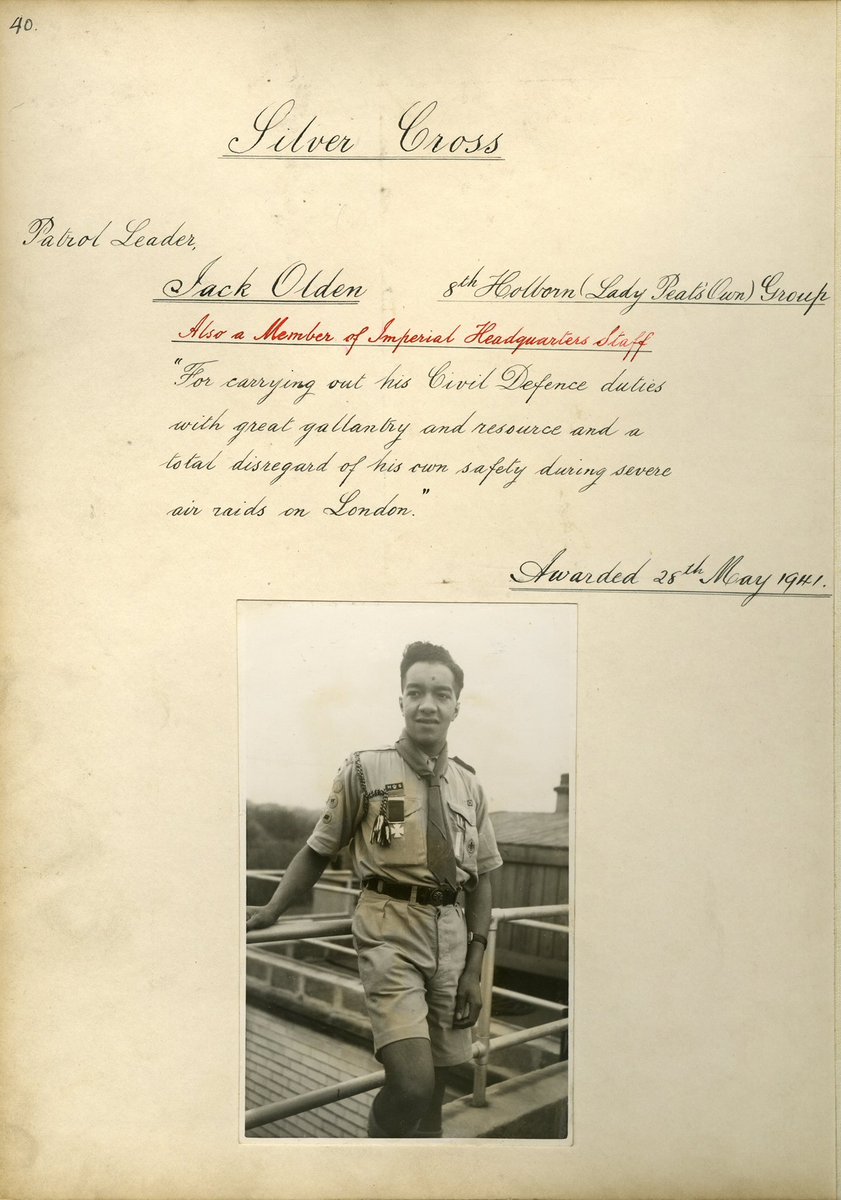 40.
Silver Cross
Patrol Leader,
Jack Olden 8th Holborn (Lady Peat's Own) Group
Also a Member of Imperial Headquarters Staff
"For carrying out his Civil Defence duties
with great gallantry and resource and a
total disregard of his own safety during severe
air raids on London."
Awarded 28th May 1941.